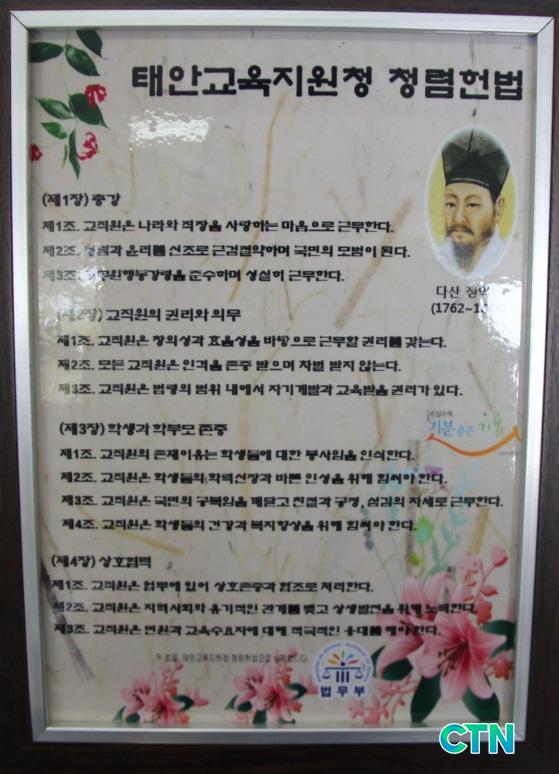 태안교육지원청 청렴헌법
(제1장) 총강
제1조. 교직원은 나라와 직장을 사랑하는 마음으로 근무한다.
제2조. 청렴과 윤리를 신조로 근검절약하며 국민의 모범이 된다.
제3조. 공무원행동강령을 준수하며 성실히 근무한다.
다산 정약
(1762~18
(제2장) 교직원의 권리와 의무
제1조. 교직원은 창의성과 효율성을 바탕으로 근무할 권리를 갖는다.
제2조. 모든 교직원은 인격을 존중 받으며 차별 받지 않는다.
제3조. 교직원은 법령의 범위 내에서 자기개발과 교육받을 권리가 있다.
기분 좋은
(제3장) 학생과 학부모 존중
제1조. 교직원의 존재이유는 학생들에 대한 봉사임을 인식한다.
제2조. 교직원은 학생들의 학력신장과 바른 인성을 위해 힘써야 한다.
제3조. 교직원은 국민의 공복임을 깨닫고 친절과 공정, 섬김의 자세로 근무한다.
제4조. 교직원은 학생들의 건강과 복지향상을 위해 힘써야 한다.
(제4장) 상호협력
제1조. 교직원은 업무에 있어 상호존중과 협조로 처리한다.
제2조. 교직원은 지역사회와 유기적인 관계를 맺고 상생발전을 위해 노력한다.
제3조. 교직원은 민원과 교육수요자에 대해 적극적인 응대를 해야한다.
위 법을 태안교육지원청 청렴헌법으로
법무부
CTN